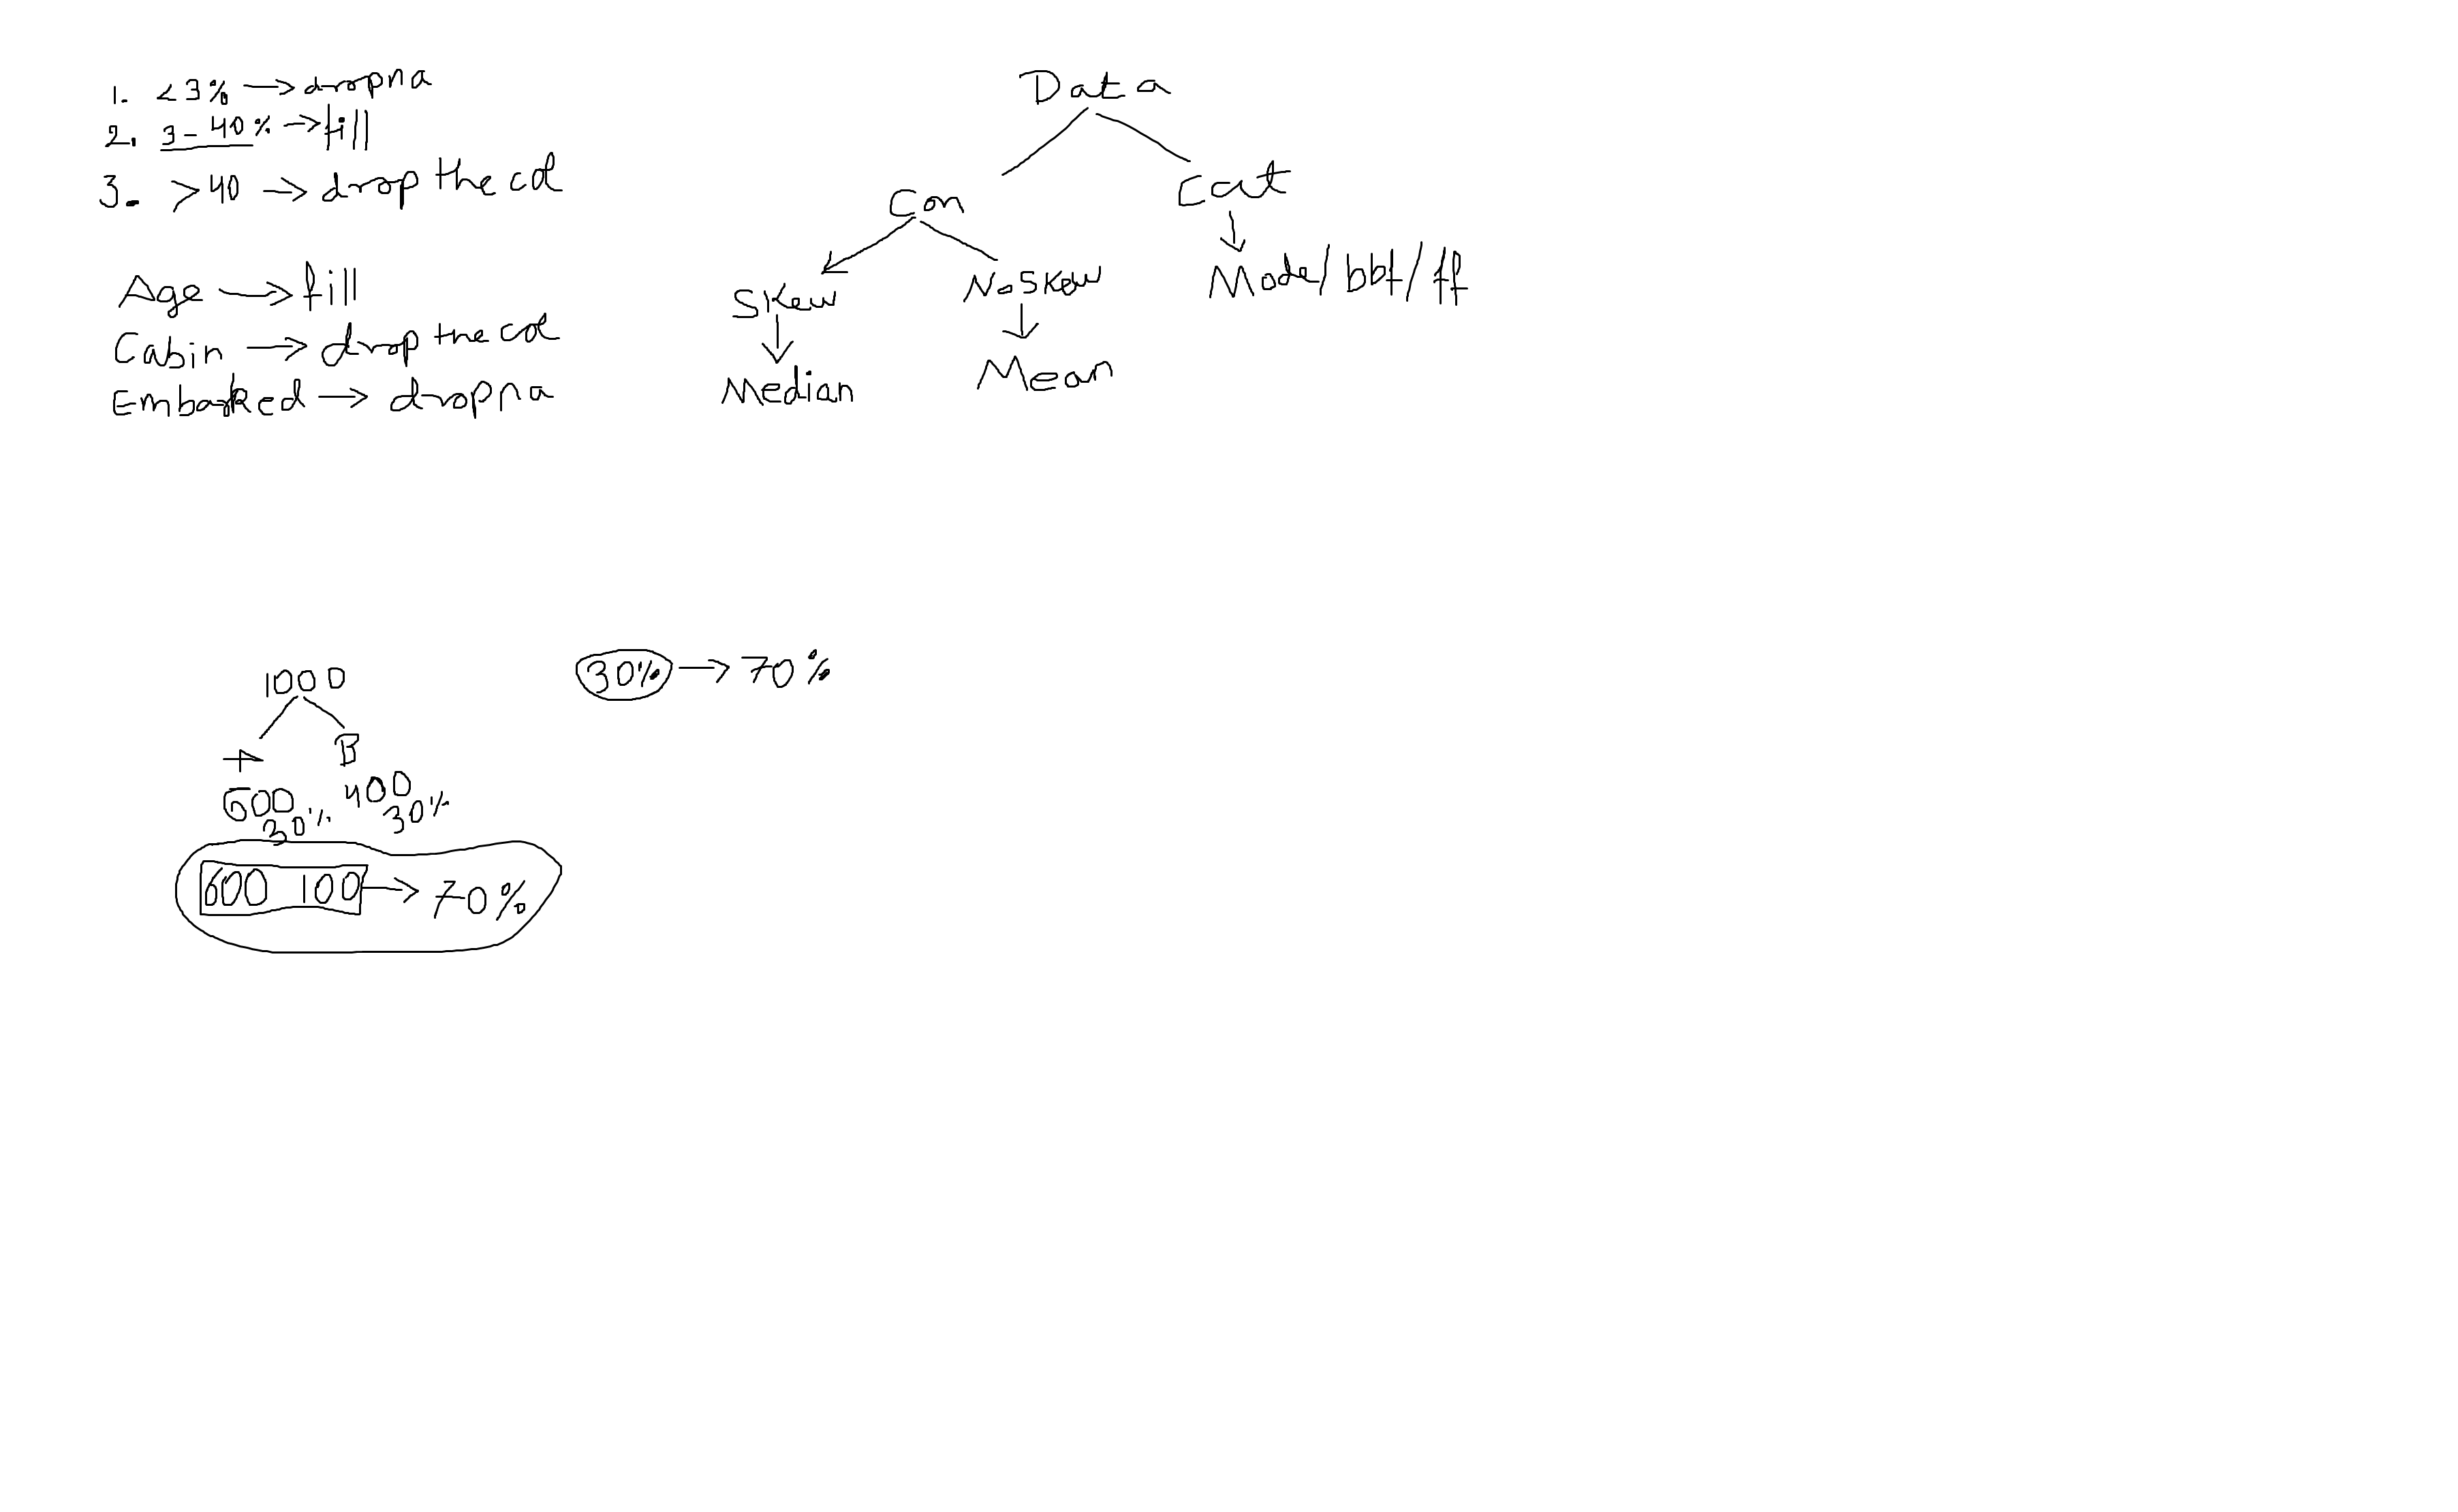 1. <3% → dropna
2. 3-40% → fill
3. >40 → drop the col
Age → fill
Cabin → drop the col
Embarked → dropna
Data
Con Cat
Skew No skew Mode/bbf/ff
Median Mean
30% → 70%
1000
A B
600 400
30% 30%
600 100 → 70%